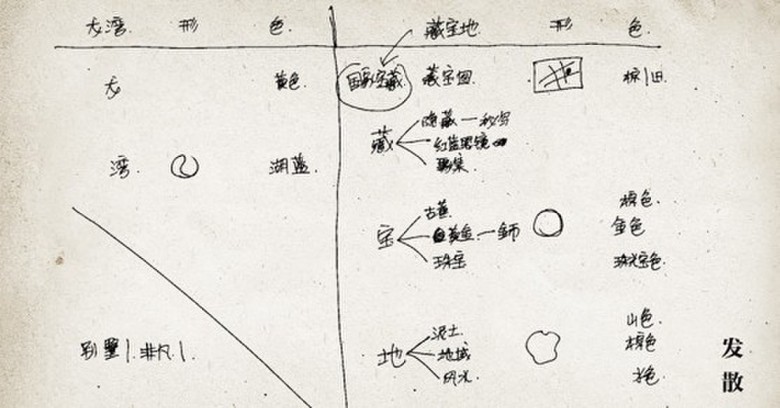 大湾. 形 色.
藏宝地. 形 色.
大 黄色.
国家宝藏 藏宝图 棕 旧.
湾. 湖蓝.
藏 隐藏一秘密
红蓝眼镜
聚集.
宝 古董.
黄金.
珠宝
棕色.
金色.
珠光宝色.
别墅 非凡
地 泥土
地域
风水.
山色.
棕色
发散